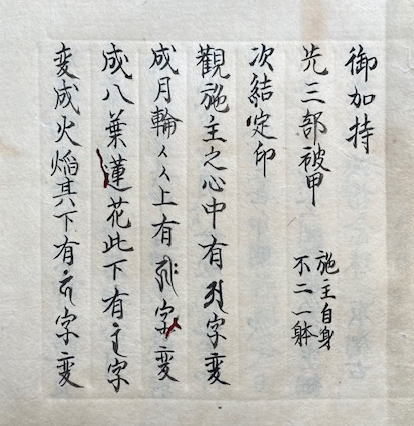 御加持
先三部被甲
施主自身
不二一躰
次結定印
觀施主之心中有字変
成月輪〻〻上有字変
成八葉蓮花此下有字
変成火焔其下有字変